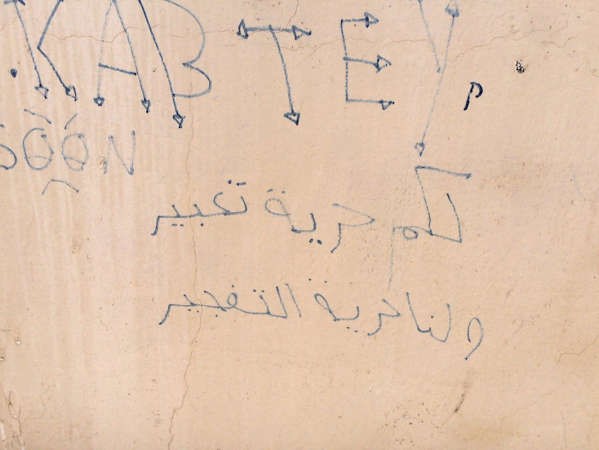 KABTEY P
SOON
لكم حرية تعبير
ولنا حرية التفجير